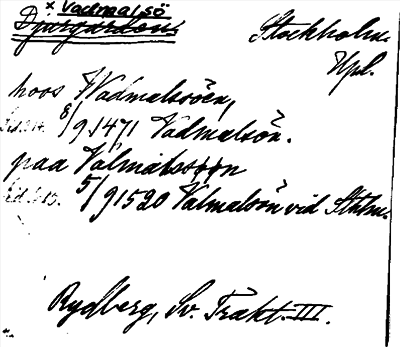 × Vadmalsö
Djurgården
Stockholm
Upl.
hoos Wadmalsöen,
8/9 1471 Vadmalsön.
paa Valmalssøøn
5/9 1520 Valmalsön vid Sthlm.
Rydberg, Sv. Trakt. III.